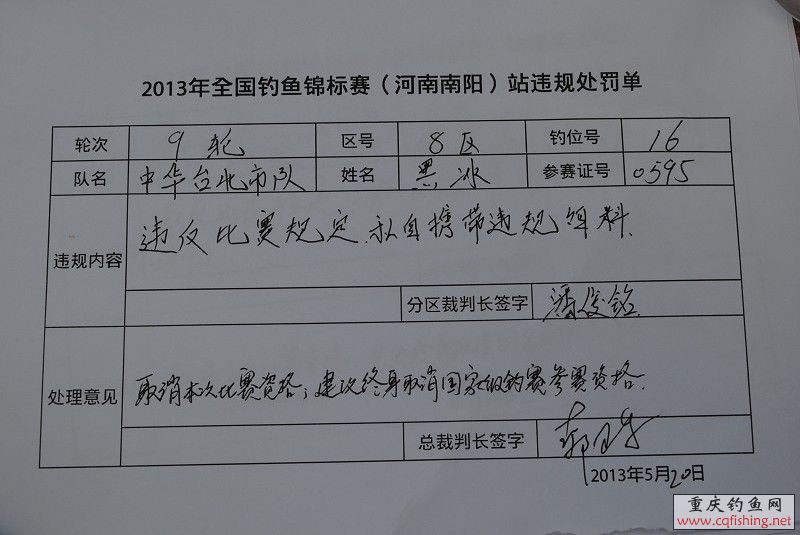 2013年全国钓鱼锦标赛（河南南阳）站违规处罚单
轮次 9轮 区号 8区 钓位号 16
队名 中华台北市队 姓名 黑冰 参赛证号 0595
违规内容 违反比赛规定.私自携带违规饵料.
分区裁判长签字 潘俊铭
处理意见 取消本次比赛资格；建议终身取消国家级钓赛参赛资格.
总裁判长签字
2013年5月20日
重庆钓鱼网
www.cqfishing.net